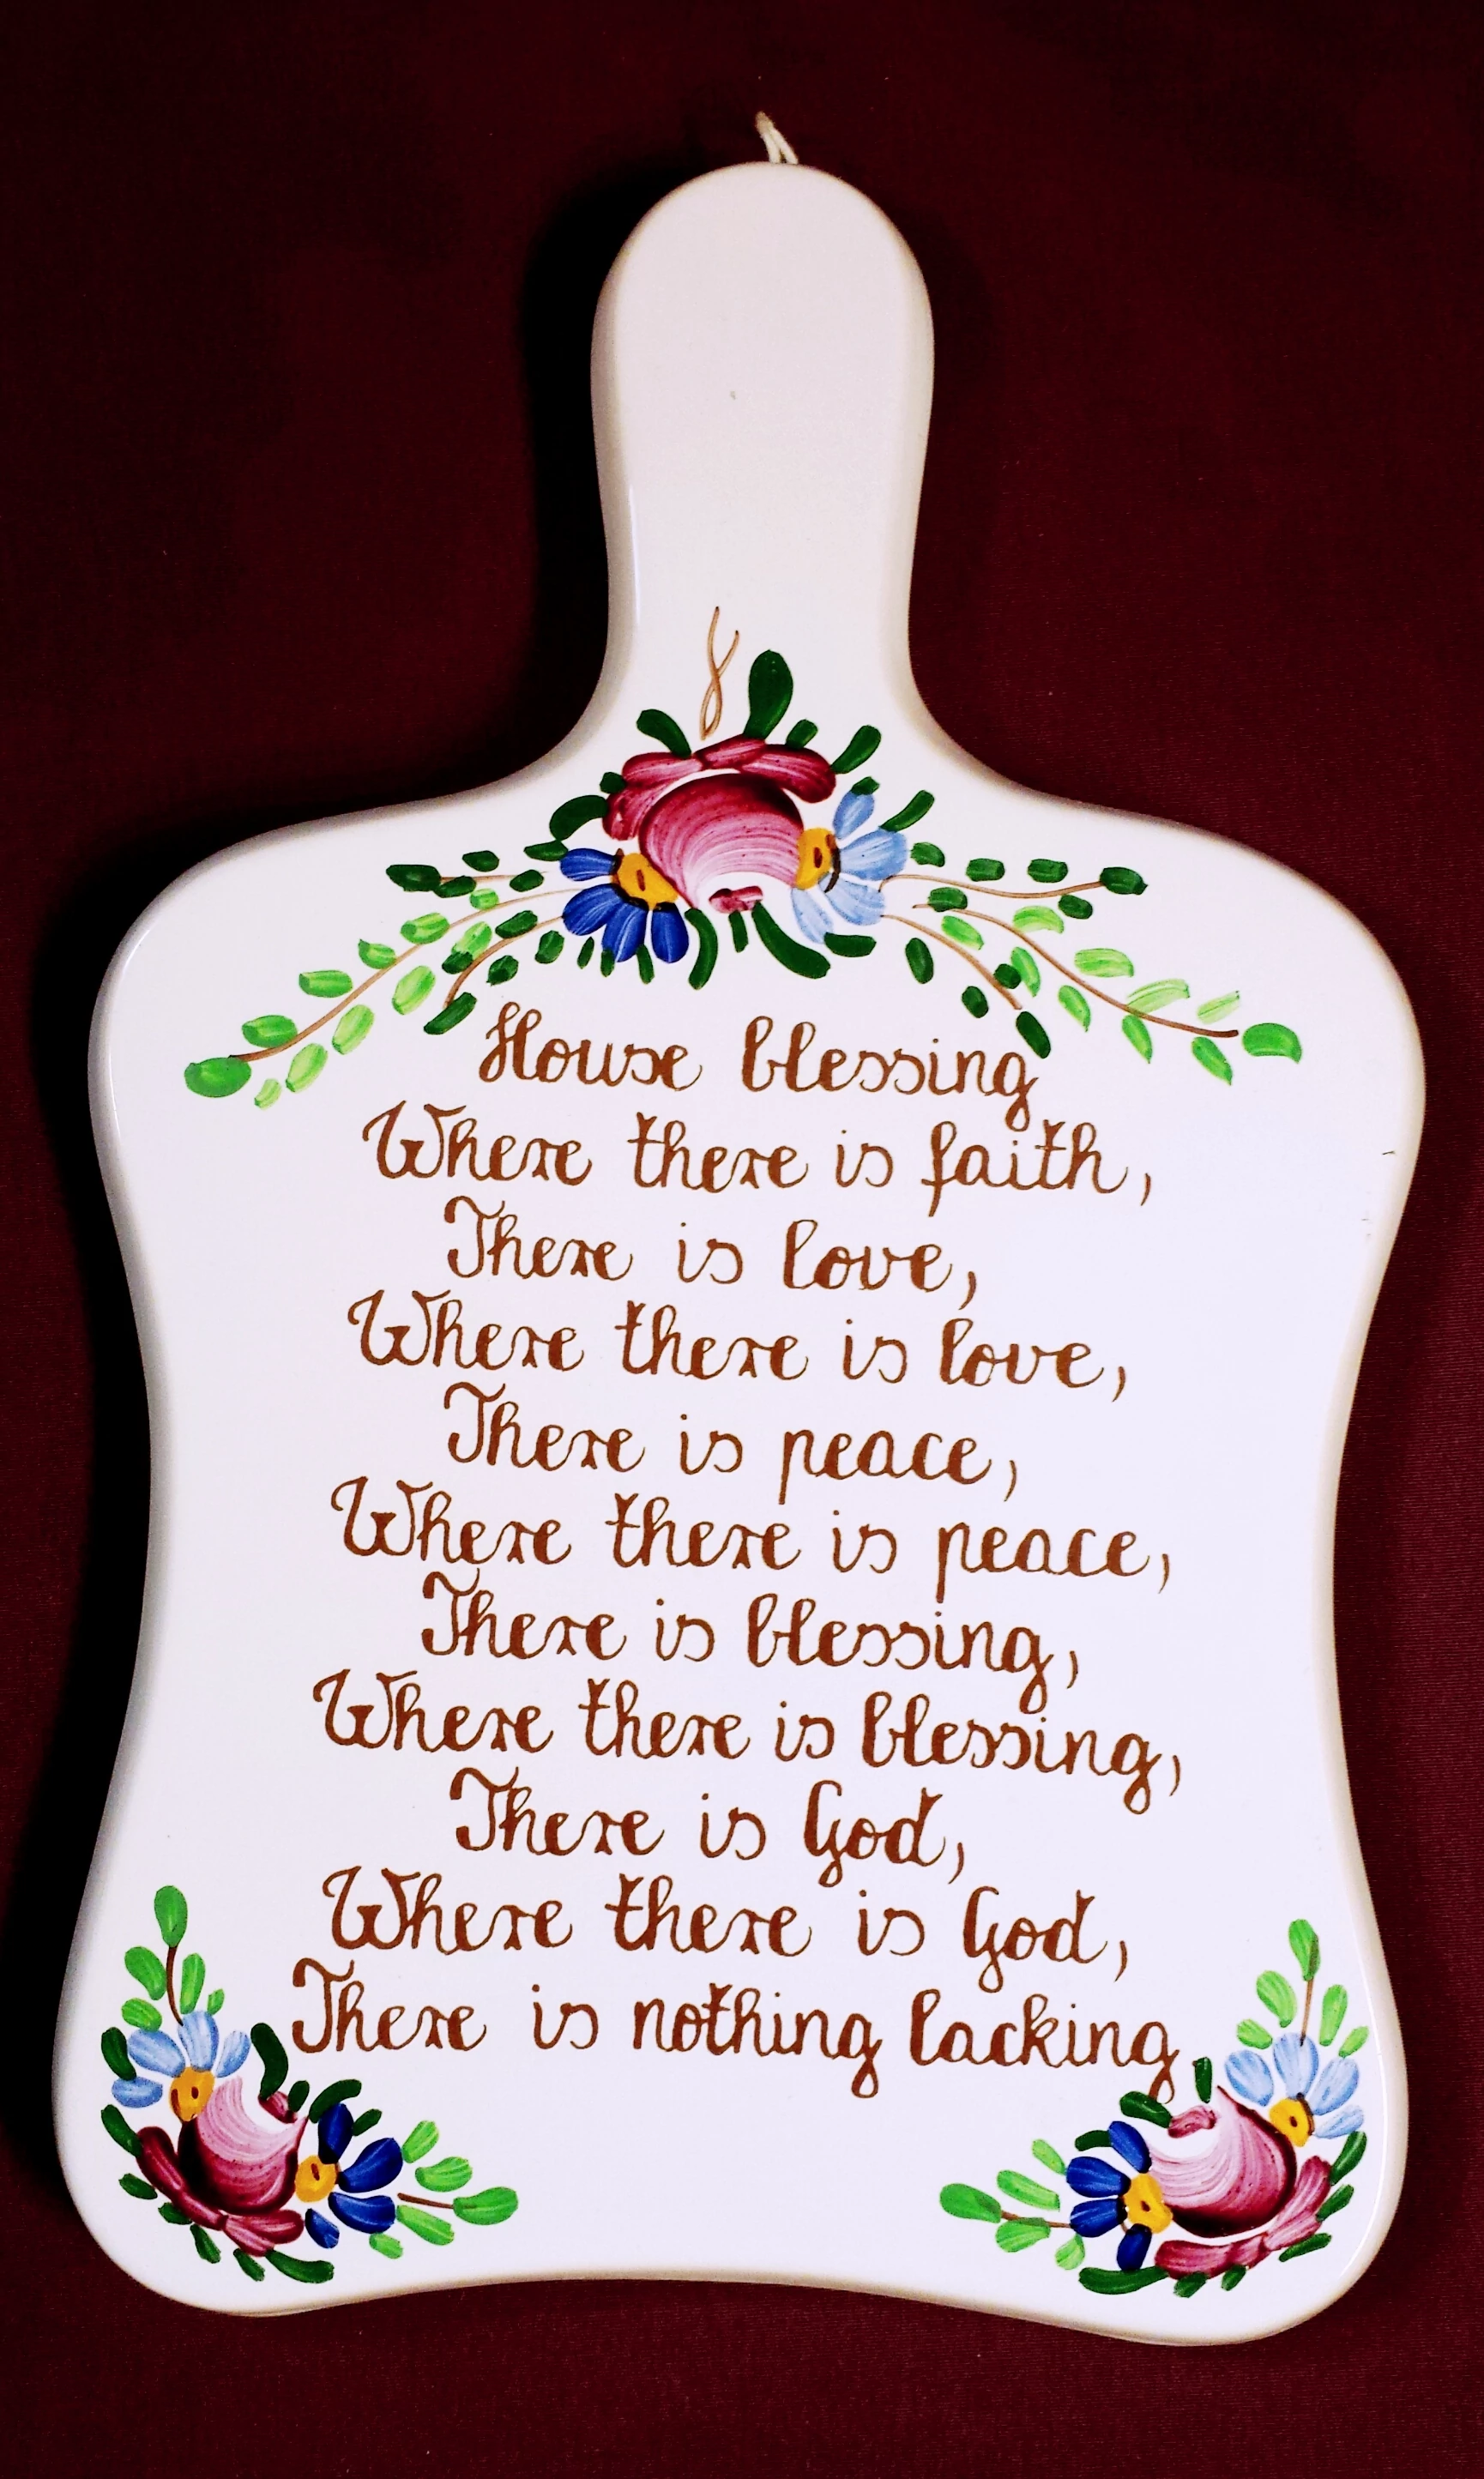 House blessing
Where there is faith,
There is love,
Where there is love,
There is peace,
Where there is peace,
There is blessing,
Where there is blessing,
There is God,
Where there is God,
There is nothing lacking